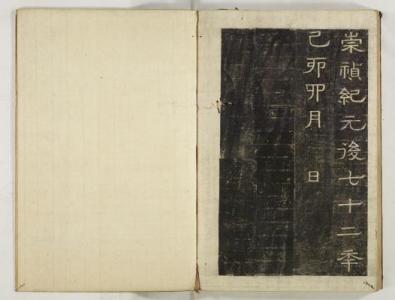 崇禎紀元後七十二年
己卯四月 日